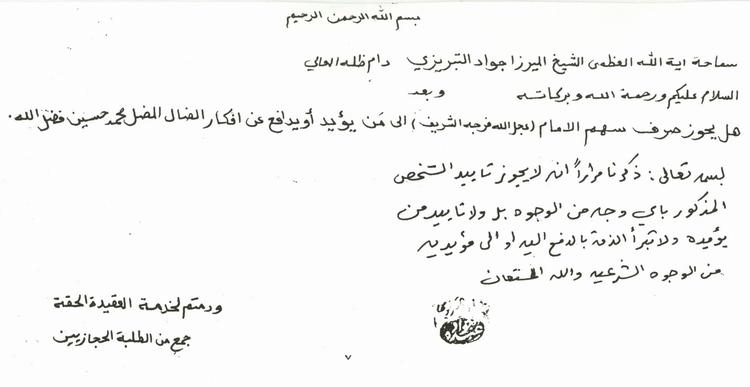 بسم الله الرحمن الرحيم
سماحة اية الله العظمى الشيخ الميرزا جواد التبريزي دام ظله العالي
السلام عليكم ورحمة الله وبركاته وبعد
هل يجوز صرف سهم الامام (عجل الله فرجه الشريف) الى من يؤيد أو يدافع عن افكار الضال المضل محمد حسين فضل الله.
بسمه تعالى: ذكرنا مراراً انه لا يجوز تاييد الشخص
المذكور باي وجه من الوجوه بل ولا تاييد من
يؤيده ولا تبرأ الذمة بالدفع اليه او الى مؤيديه
من الوجوه الشرعيه والله المستعان
ودمتم لخدمة العقيدة الحقة
جمع من الطلبة الحجازيين
٧